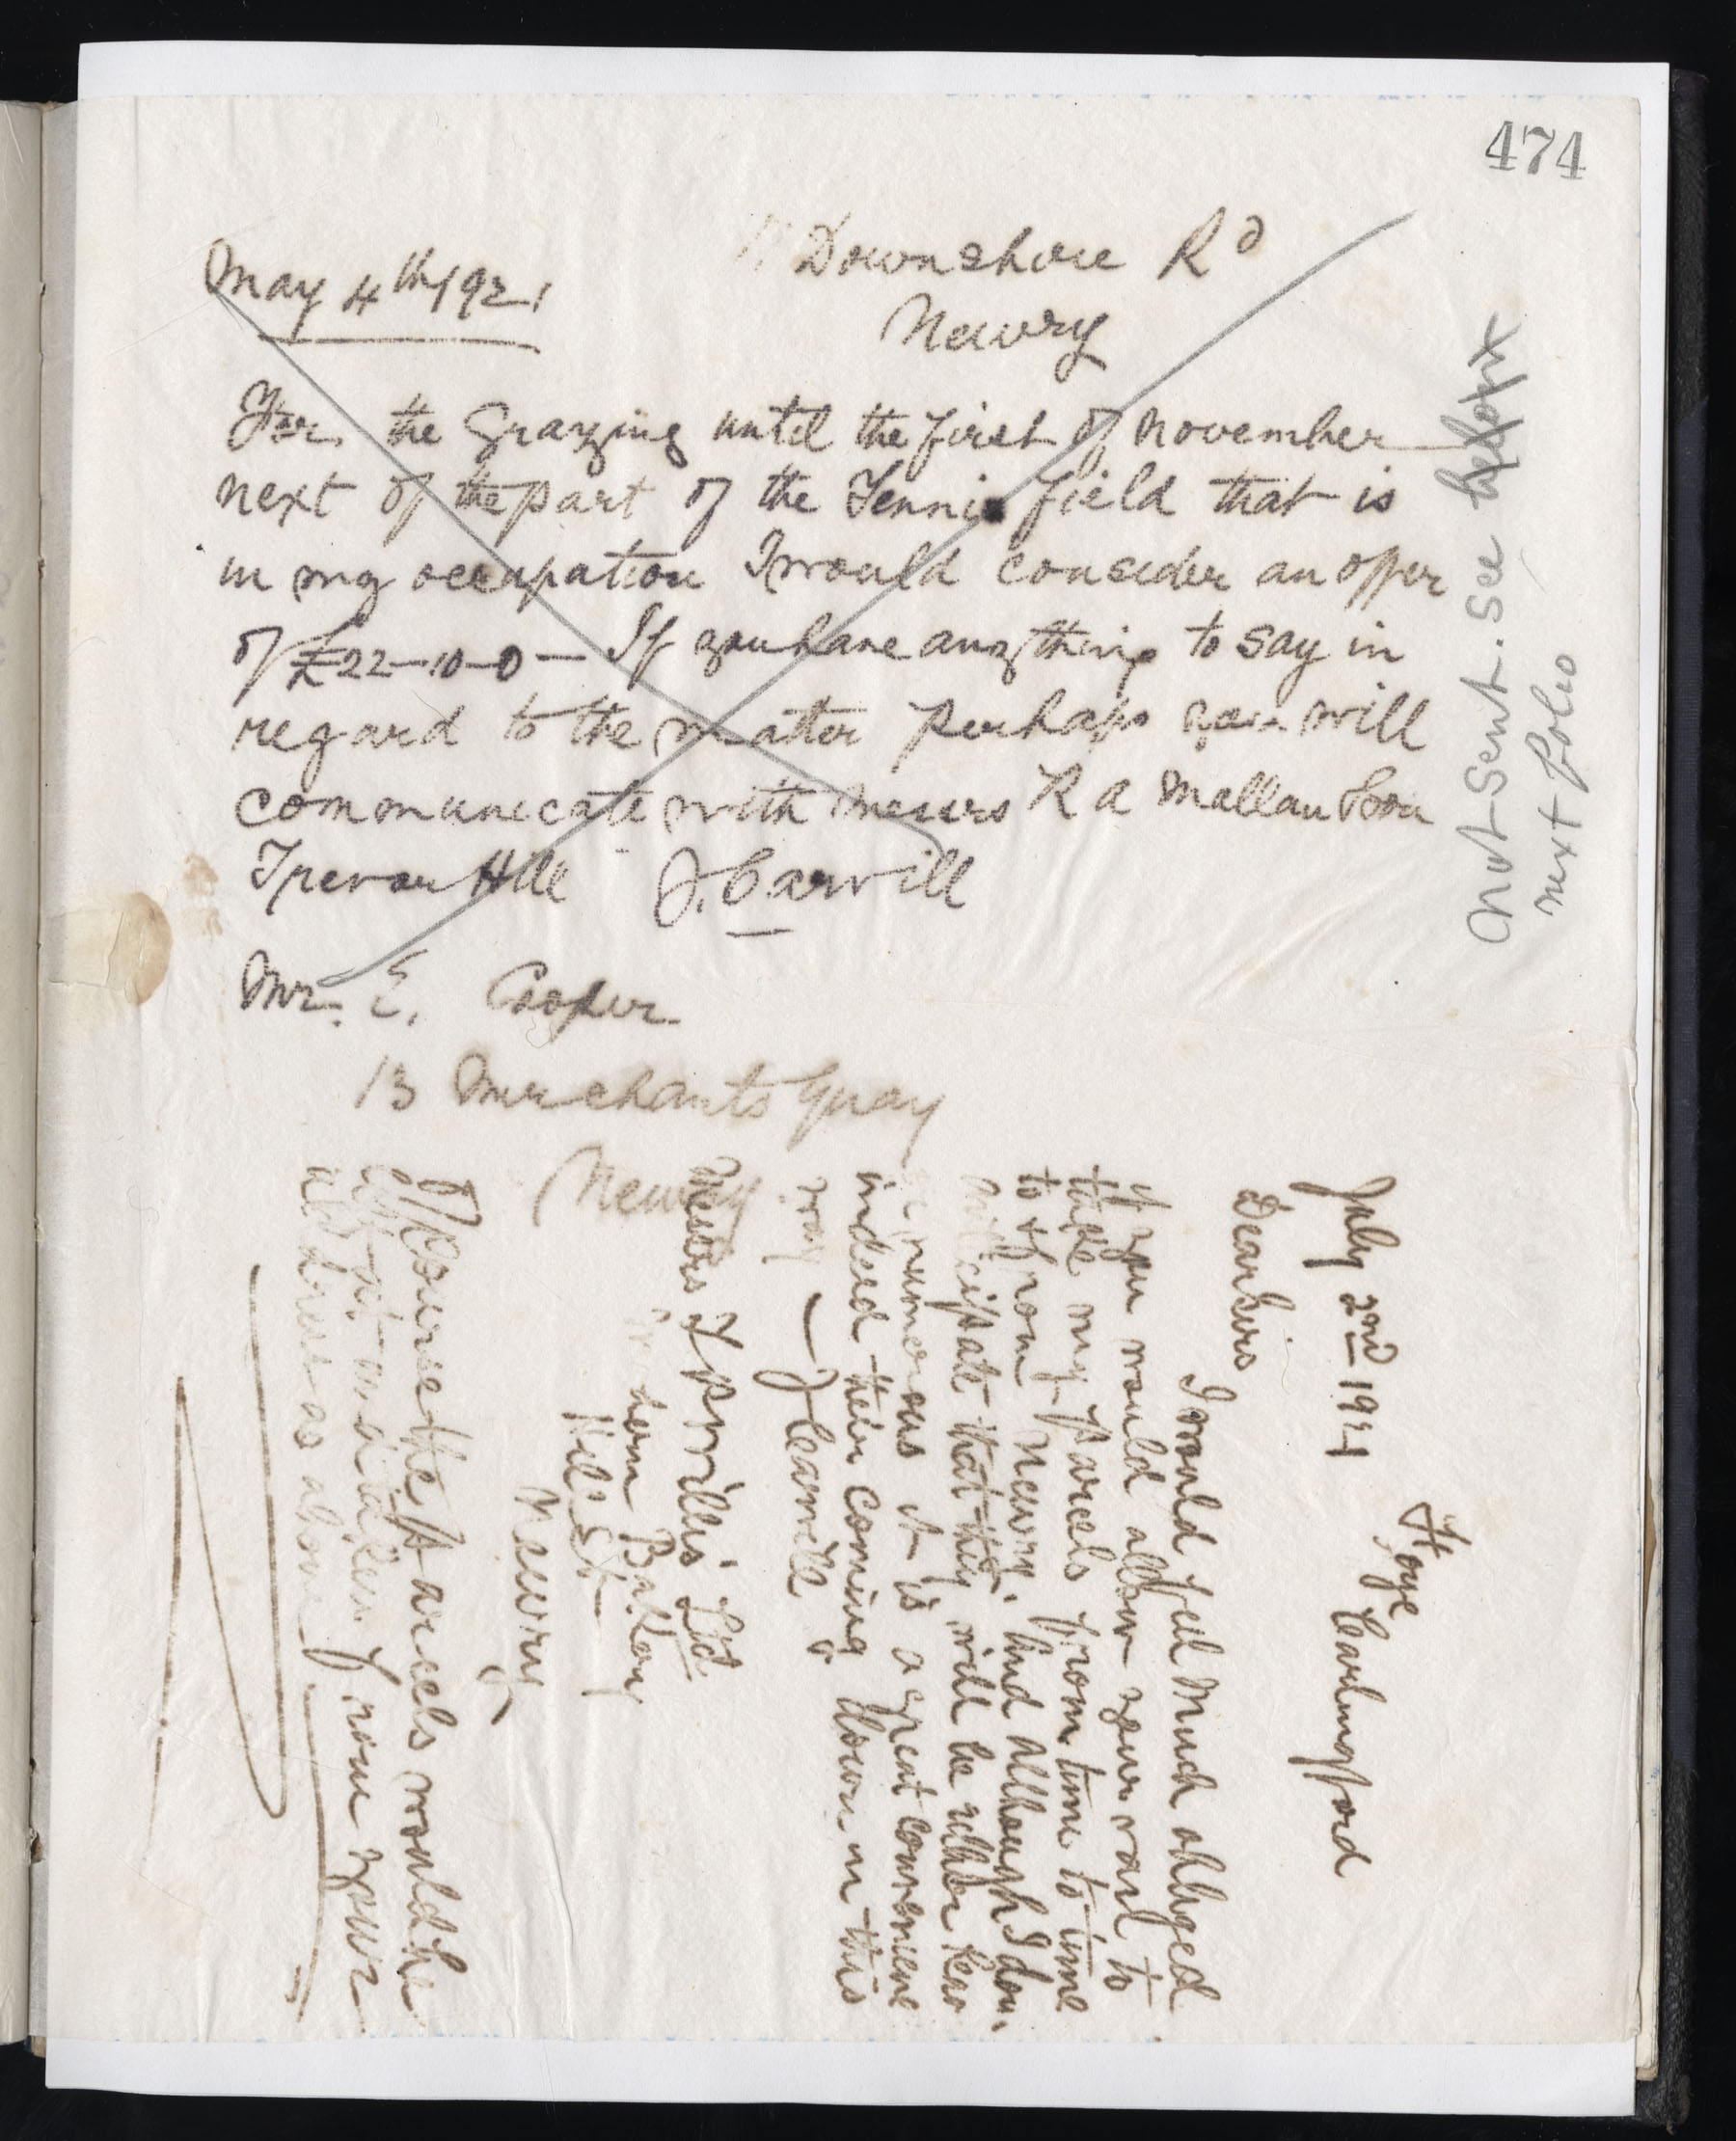 474
May 4th 1921
Downshire Rd
Newry
For the Grazing until the first of November
next of the part of the Tennis field that is
in my occupation I would consider an offer
of £22-10-0 — If you have anything to say in
regard to the matter perhaps you will
communicate with Messrs R A Mallau Son
Trevor Hill J. Carvill
Mr. E. Cooper
13 Merchants Quay
Newry
Not sent. See before
next folio
July 2nd 1921
Foye Carlingford
Dear Sirs
I would feel much obliged
if you would allow your van to
take my parcels from time to time
to & from Newry. And although I don
anticipate that they will be either
numerous it is a great
indeed their coming down in this
way — J Carvill
Messrs F Willis Ltd
Bakery
Hill St
Newry
Of course the parcels would be
left at and taken from your
address as above